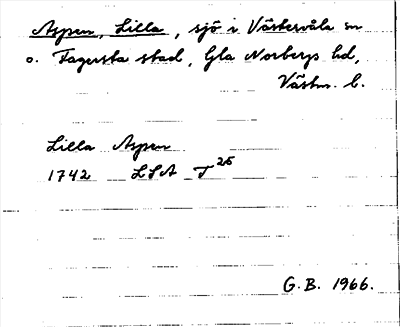 Aspen, Lilla, sjö i Västervåla sn
o. Fagersta stad, Gla Norbergs hd,
Västm. l.
Lilla Aspen
1742 LSA T25
G.B. 1966.